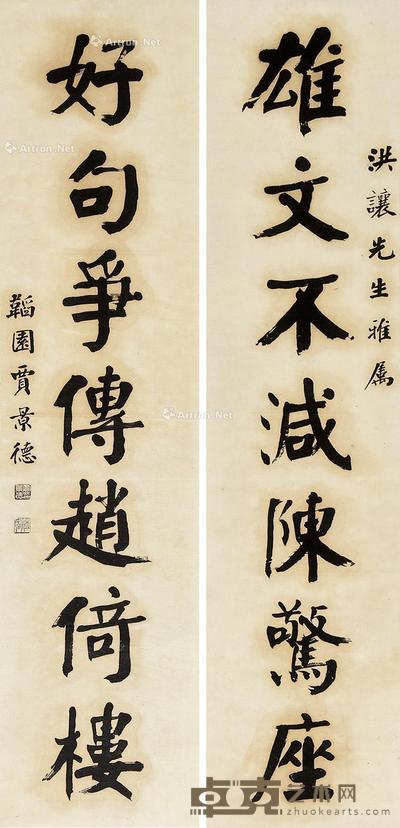 洪讓先生雅屬
雄文不減陳驚座
好句爭傳趙倚樓
韜園賈景德
Artron.Net
Artron.Net
Artron.Net
Artron.Net
卓克艺术网
www.zhuokearts.com